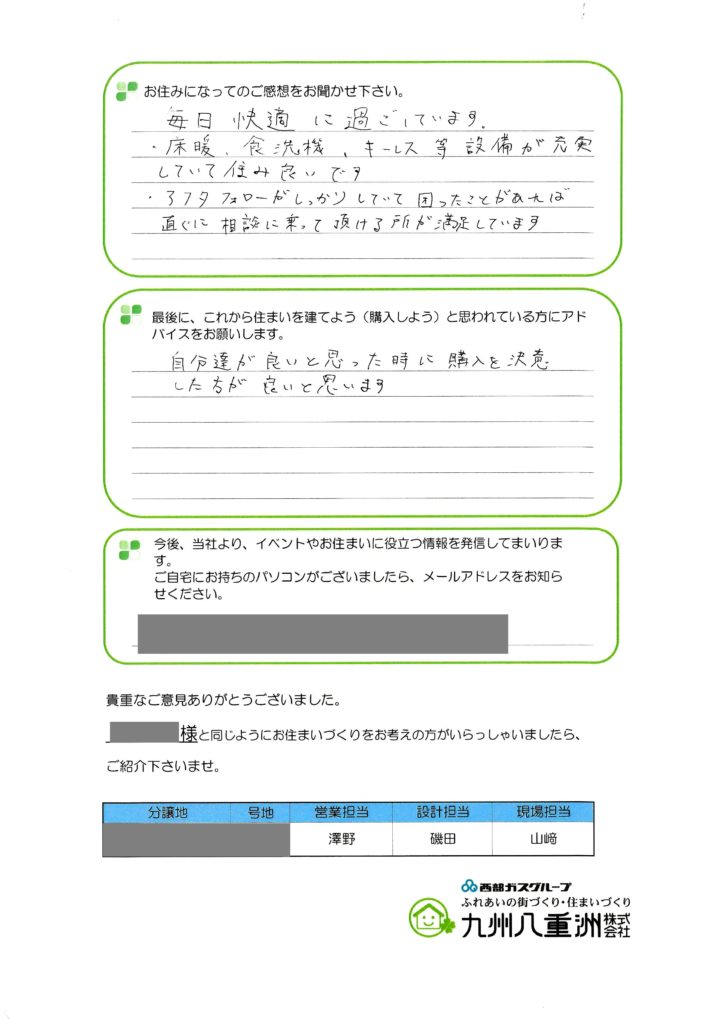 お住みになってのご感想をお聞かせ下さい。
毎日 快適 に 過ごしています.
・床暖、食洗機、キーレス等 設備が充実
していて 住み良いです
・アフタフォローがしっかりしていて 困ったことがあれば
直ぐに 相談に乗って 頂ける所が満足しています
最後に、これから住まいを建てよう（購入しよう）と思われている方にアド
バイスをお願いします。
自分達が良いと思った時に 購入を決意
した方が 良いと思います
今後、当社より、イベントやお住まいに役立つ情報を発信してまいりま
す。
ご自宅にお持ちのパソコンがございましたら、メールアドレスをお知ら
せください。
貴重なご意見ありがとうございました。
様と同じようにお住まいづくりをお考えの方がいらっしゃいましたら、
ご紹介下さいませ。
分譲地 号地 営業担当 設計担当 現場担当
澤野 磯田 山﨑
西部ガスグループ
ふれあいの街づくり・住まいづくり
九州八重洲株式会社